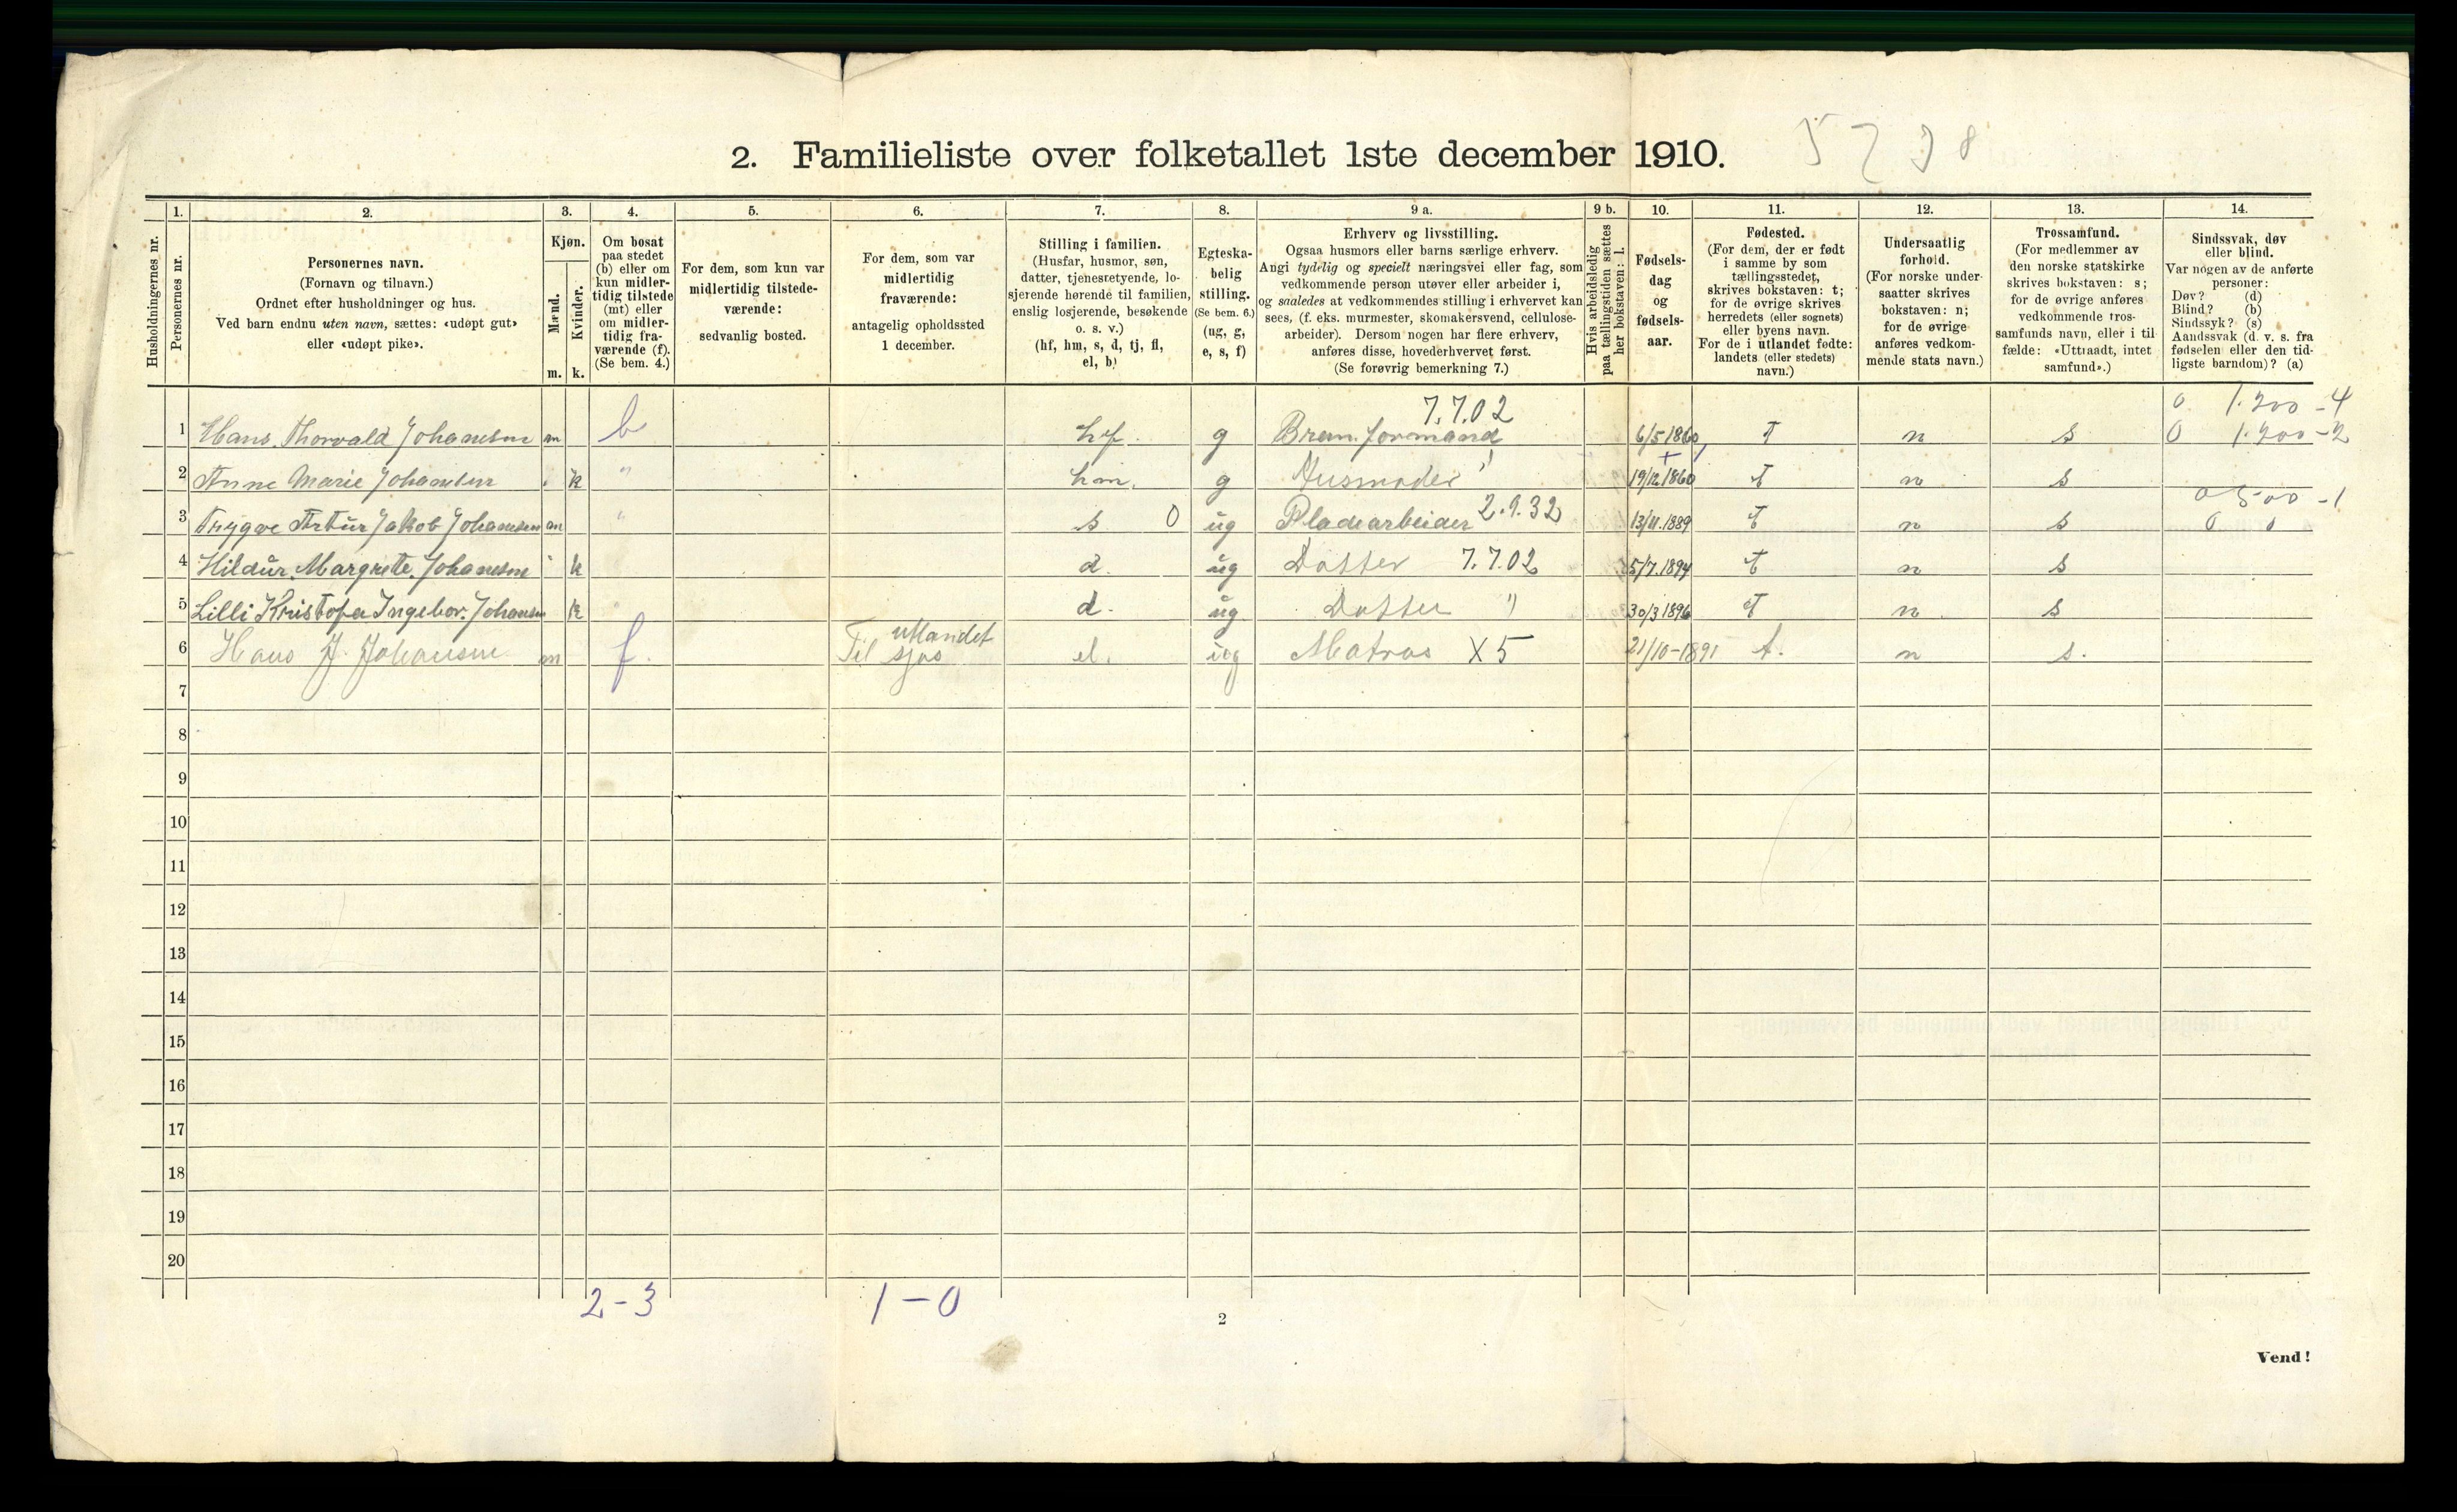 2. Familieliste over folketallet 1ste december 1910.
Husholdningernes nr.
1. Personernes nr.
2. Personernes navn.
(Fornavn og tilnavn.)
Ordnet efter husholdninger og hus.
Ved barn endnu uten navn, sættes: «udøpt gut»
eller «udøpt pike».
3. Kjøn.
Mænd. m.
Kvinder. k.
4. Om bosat
paa stedet
(b) eller om
kun midler-
tidig tilstede
(mt) eller
om midler-
tidig fra-
værende (f).
(Se bem. 4.)
5. For dem, som kun var
midlertidig tilstede-
værende:
sedvanlig bosted.
6. For dem, som var
midlertidig
fraværende:
antagelig opholdssted
1 december.
7. Stilling i familien.
(Husfar, husmor, søn,
datter, tjenestetyende, lo-
sjerende hørende til familien,
enslig losjerende, besøkende
o. s. v.)
(hf, hm, s, d, tj, fl,
el, b)
8. Egteska-
belig
stilling.
(Se bem. 6.)
(ug, g,
e, s, f)
9 a. Erhverv og livsstilling.
Ogsaa husmors eller barns særlige erhverv.
Angi tydelig og specielt næringsvei eller fag, som
vedkommende person utøver eller arbeider i,
og saaledes at vedkommendes stilling i erhvervet kan
sees, (f. eks. murmester, skomakersvend, cellulose-
arbeider). Dersom nogen har flere erhverv,
anføres disse, hovederhvervet først.
(Se forøvrig bemerkning 7.)
9 b. Hvis arbeidsledig
paa tællingstiden sættes
her bokstaven: l.
10. Fødsels-
dag
og
fødsels-
aar.
11. Fødested.
(For dem, der er født
i samme by som
tællingsstedet,
skrives bokstaven: t;
for de øvrige skrives
herredets (eller sognets)
eller byens navn.
For de i utlandet fødte:
landets (eller stedets)
navn.)
12. Undersaatlig
forhold.
(For norske under-
saatter skrives
bokstaven: n;
for de øvrige
anføres vedkom-
mende stats navn.)
13. Trossamfund.
(For medlemmer av
den norske statskirke
skrives bokstaven: s;
for de øvrige anføres
vedkommende tros-
samfunds navn, eller i til-
fælde: «Uttraadt, intet
samfund».)
14. Sindssvak, døv
eller blind.
Var nogen av de anførte
personer:
Døv? (d)
Blind? (b)
Sindssyk? (s)
Aandssvak (d. v. s. fra
fødselen eller den tid-
ligste barndom)? (a)
7.7.02 0 1.200 - 4
1 Hans. Thorvald Johansen m b hf. g formand 6/5 1860 T n s 0 1.200 - 2
2 Anne Marie Johansen k " hm. g Husmoder 19/12 1860 T n s
3 Trygve Artur Jakob Johansen m " s 0 ug Pladearbeider 2.9.32 13/11.1889 T n s 0 500 - 1 0 0
4 Hildur. Margrete. Johansen k d. ug Datter 7.7.02 5/7.1894 T n s
5 Lilli Kristofa Ingebor. Johansen k d. ug Datter " 30/3 1896 T n s
6 Hans J. Johansen m f. Til sjøs utlandet el. ug Matros X5 21/10-1891 t. n s.
7
8
9
10
11
12
13
14
15
16
17
18
19
20
2-3 1-0
2
Vend!